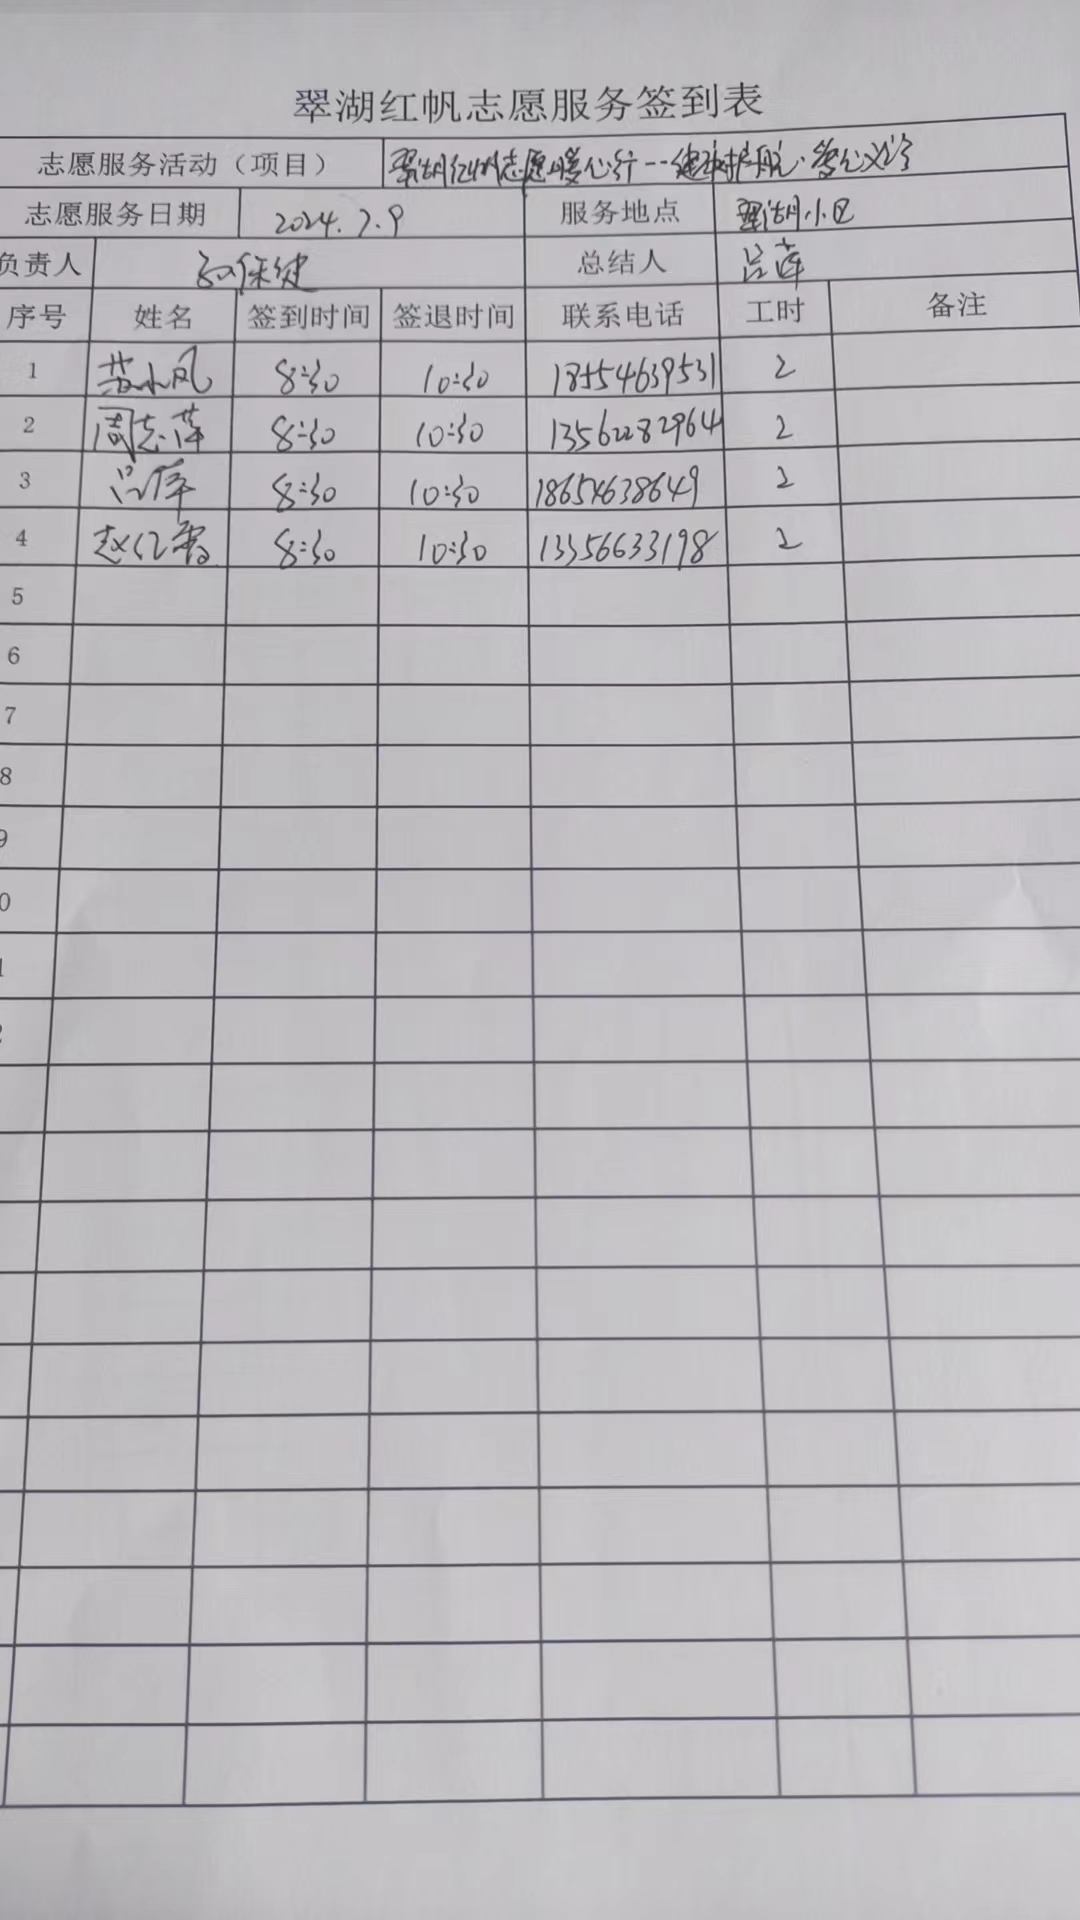 翠湖红帆志愿服务签到表
志愿服务活动（项目） 翠湖红帆志愿暖心行--健康护航·爱心义诊
志愿服务日期 2024.7.9 服务地点 翠湖小区
负责人 保健 总结人 吕萍
序号 姓名 签到时间 签退时间 联系电话 工时 备注
1 苏小凤 8:30 10:30 18554639531 2
2 周志萍 8:30 10:30 13562282964 2
3 吕萍 8:30 10:30 18654638649 2
4 赵 8:30 10:30 13356633198 2
5
6
7
8
9
0
1
2